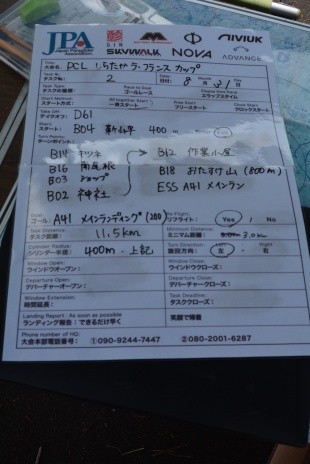 JPA
Japan Paraglider Association
GIN
SKYWALK
NOVA
NIVIUK
ADVANCE
Title:
大会名: PCL しらたか ラ・フランス カップ
Task No:
タスクNo: 2
Date:
日付: 8月31日
Task Type:
タスクの種類:
Race to Goal
ゴールレース
Elapse Time
エラップスタイム
Start Method:
スタート方式:
All together Start
一斉スタート
Free Start
フリースタート
Clock Start
クロックスタート
Take Off:
テイクオフ: D61
Start:
スタート: B04 400 m
Turn Points:
ターンポイント:
B16 南尾根
B03 ショップ
B02 神社
B12 作業小屋
B18 おたすけ山 (800m)
ESS A41 メインラン
Goal:
ゴール: A41 メインランディング (200)
Re-Flight:
リフライト: Yes / No
Task Distance:
タスク距離: 11.5km
Minimum Distance:
ミニマム距離: 3.0km
Cylinder Radius:
シリンダー半径: 400m・上記
Turn Direction:
旋回方向: 左・右
Window Open:
ウインドウオープン:
Window Close:
ウインドウクローズ:
Departure Open:
デパーチャーオープン:
Departure Close:
デパーチャークローズ:
Window Extension:
時間延長:
Task Deadline:
タスククローズ:
Landing Report: As soon as possible
ランディング報告: できるだけ早く
笑顔で帰着
Phone number of HQ:
大会本部電話番号: ①090-9244-7447 ②080-2001-6287